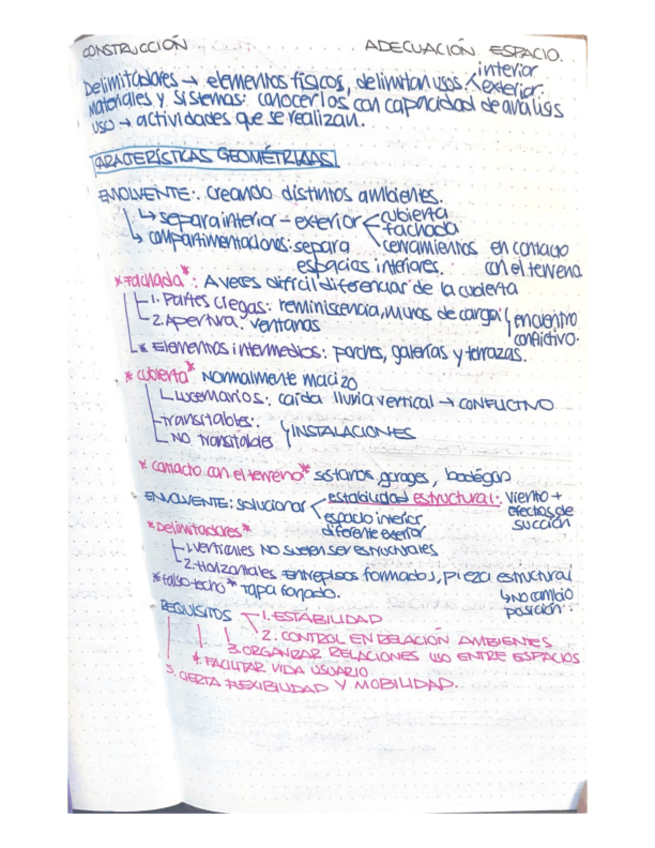 CONSTRUCCIÓN ADECUACIÓN ESPACIO.
Delimitadores → elementos físicos, delimitan usos interior exterior.
Materiales y sistemas: conocerlos con capacidad de análisis
USO → actividades que se realizan.
CARACTERÍSTICAS GEOMÉTRICAS.
ENVOLVENTE: creando distintos ambientes.
↳ separa interior - exterior cubierta
fachada
↳ compartimentaciones: separa cerramientos en contacto
espacios interiores. con el terreno
*Fachada*: A veces difícil diferenciar de la cubierta
1. Partes ciegas: reminiscencia, muros de carga encuentro
2. Apertura: ventanas conflictivo.
* Elementos intermedios: porches, galerías y terrazas.
* cubierta* Normalmente macizo
Lucernarios: caída lluvia vertical → CONFLICTIVO
Transitables:
NO transitables INSTALACIONES
* contacto con el terreno* sótanos, garages, bodegas
ENVOLVENTE: solucionar estabilidad estructural: viento +
espacio interior efectos de
diferente exterior succión
*Delimitadores*
1. verticales NO suelen ser estructurales
2. Horizontales entrepisos formados, pieza estructural
*falso techo* tapa forjado. ↳ NO cambio
posición.
REQUISITOS 1. ESTABILIDAD
2. CONTROL EN RELACIÓN AMBIENTES
3. ORGANIZAR RELACIONES USO ENTRE ESPACIOS
4. FACILITAR VIDA USUARIO
5. CIERTA FLEXIBILIDAD Y MOBILIDAD.